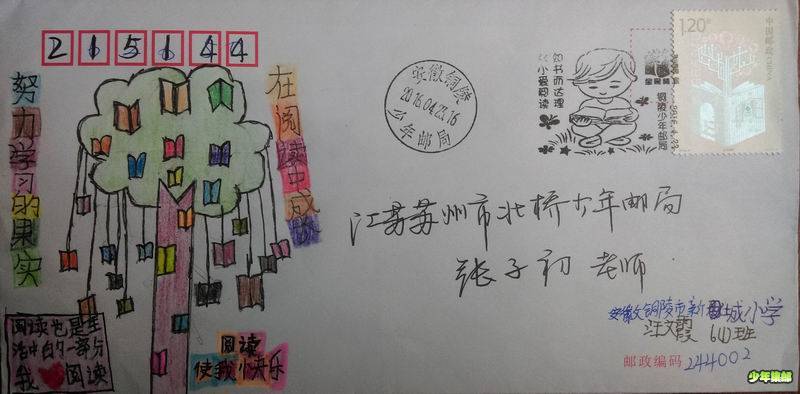 215144
努力学习的果实
在阅读中成长
阅读也是生
活中的一部分
我❤阅读
阅读
使我快乐
安徽铜陵
2016.04.23.16
少年邮局
知书而达理
小爱阅读
铜陵少年邮局
2016.4.23
1.20元
中国邮政
江苏苏州市北桥少年邮局
张子初 老师
安徽省铜陵市新城小学
汪文霞 6(1)班
邮政编码 244002
少年集邮